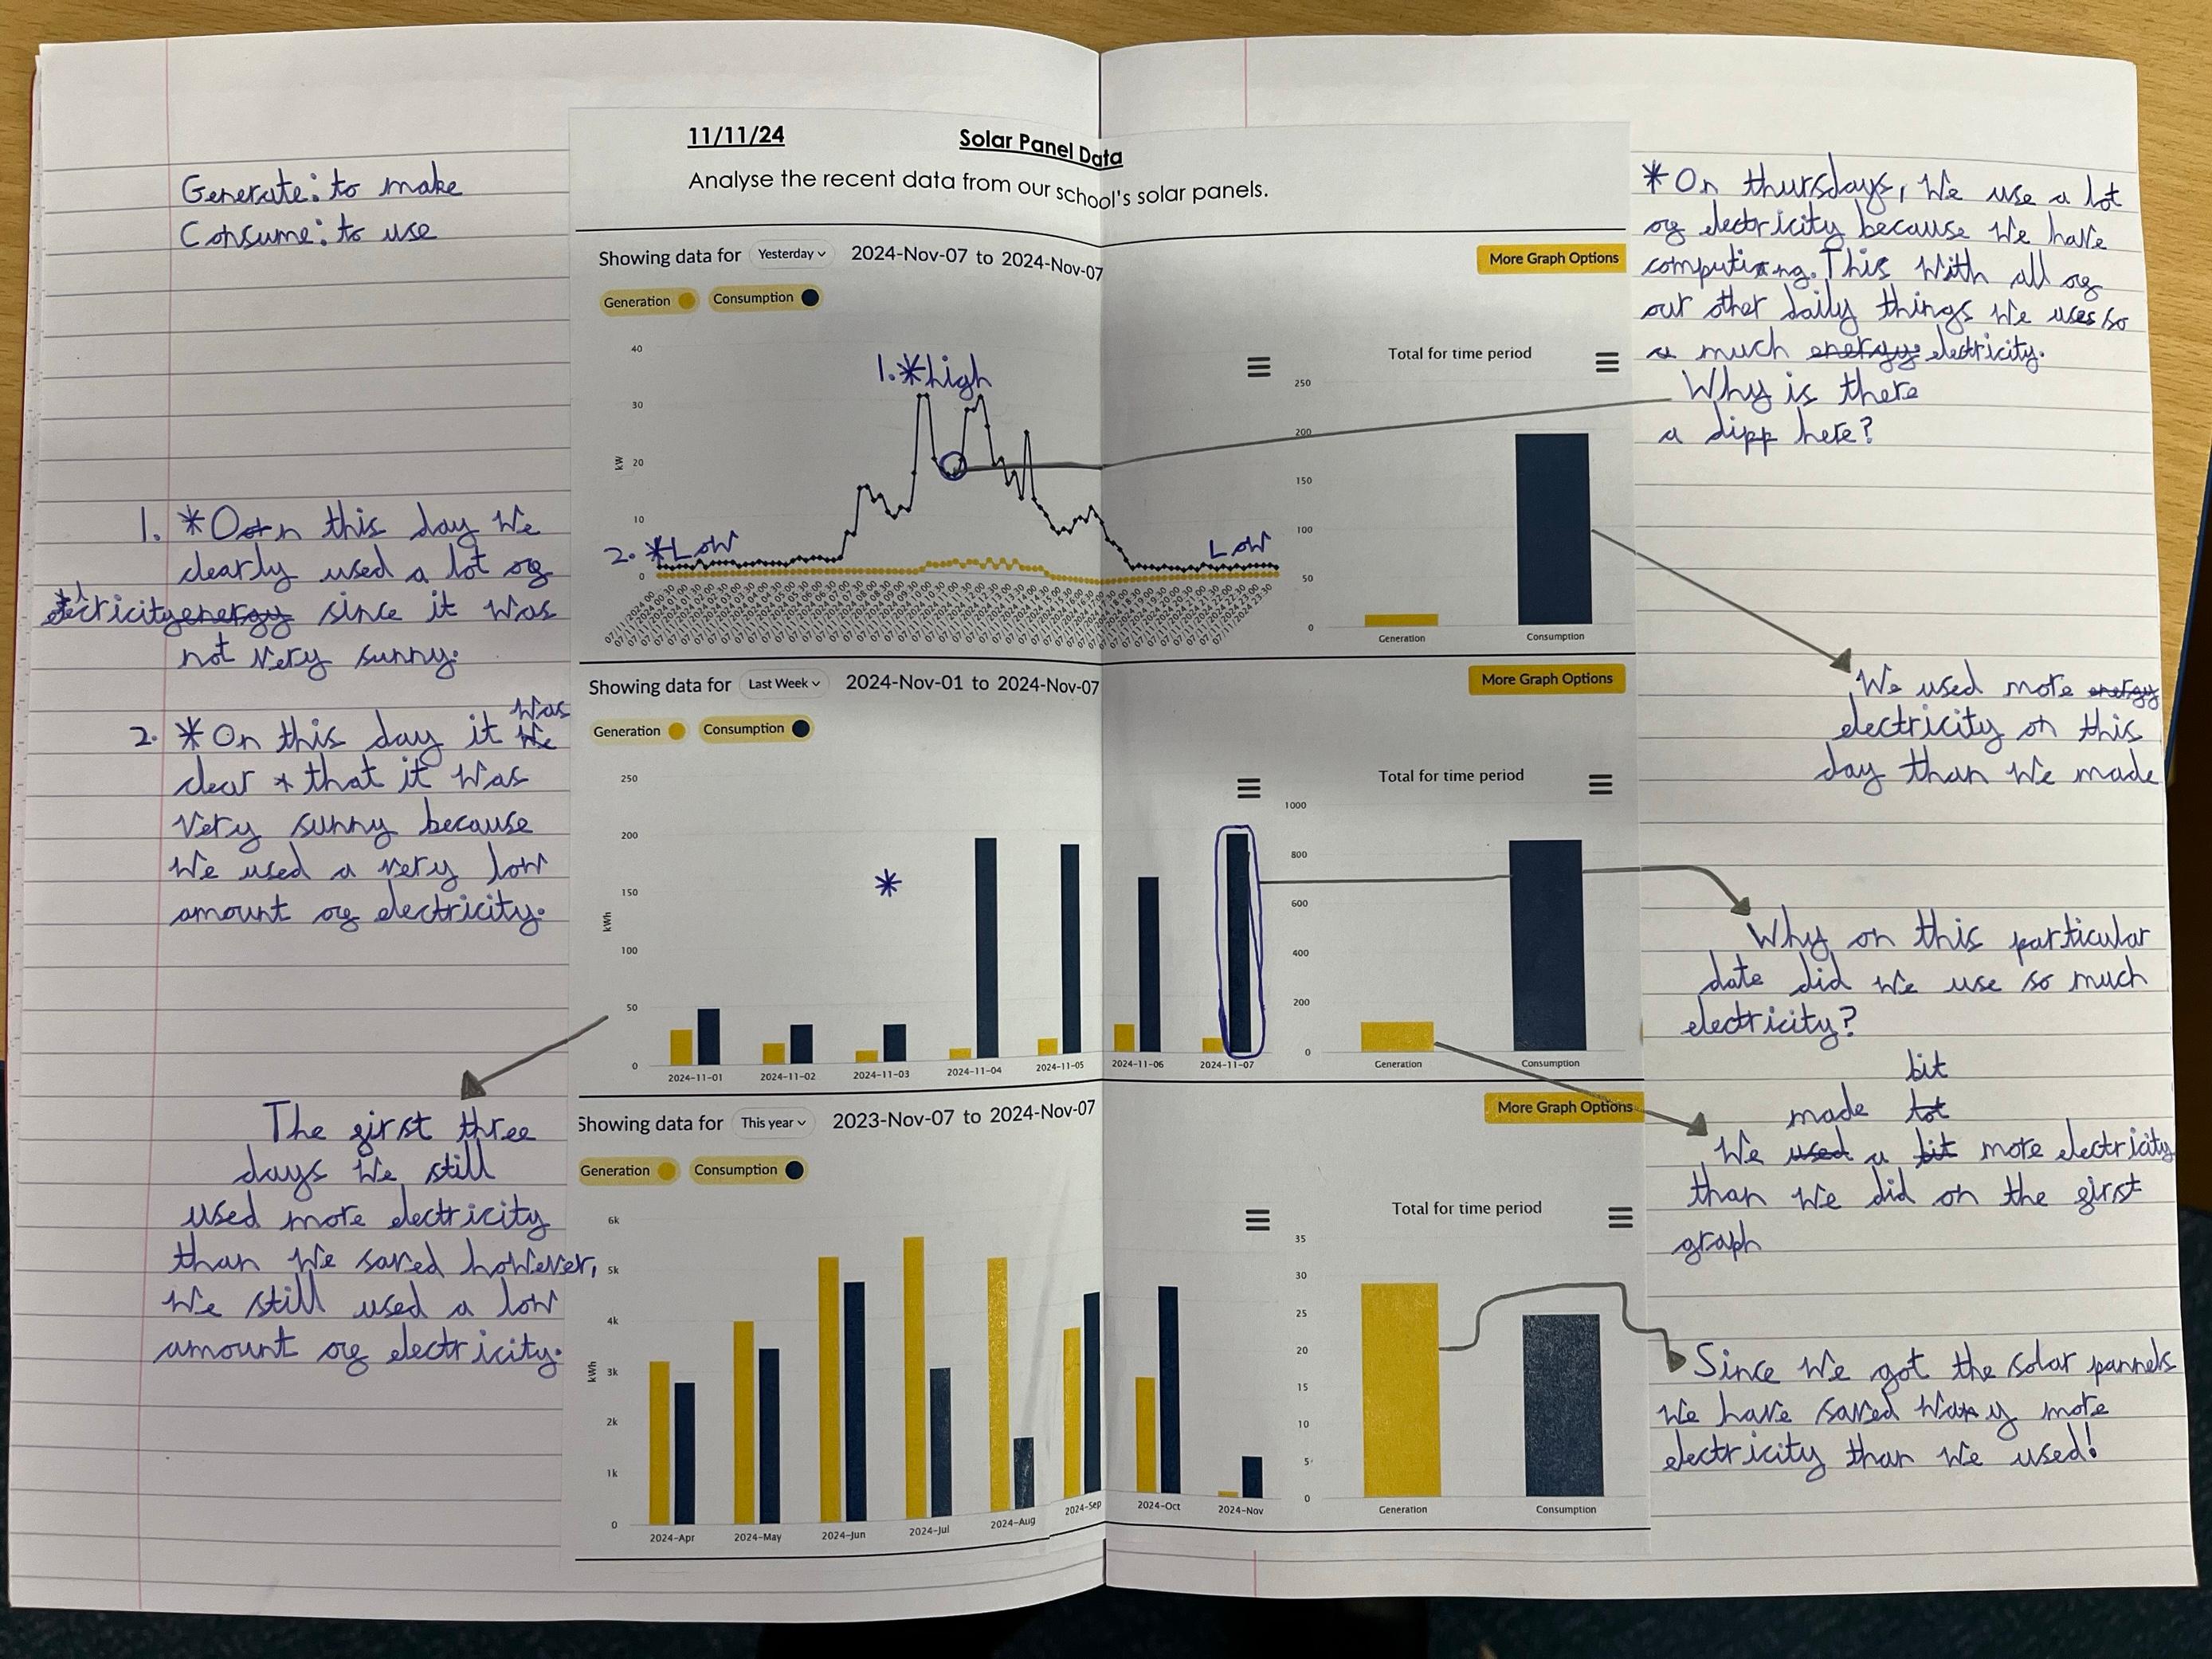 Generate: to make
Consume: to use
1. *Oon this day we
clearly used a lot of
electricity energy since it was
not very sunny.
2. *On this day it was we
clear that it was
very sunny because
we used a very low
amount of electricity.
The first three
days we still
used more electricity
than we saved however,
we still used a low
amount of electricity.
11/11/24
Solar Panel Data
Analyse the recent data from our school's solar panels.
Showing data for Yesterday 2024-Nov-07 to 2024-Nov-07
More Graph Options
Generation Consumption
1. *high
2. *Low
Low
kW
40
30
20
10
0
Total for time period
250
200
150
100
50
0
Generation Consumption
Showing data for Last Week 2024-Nov-01 to 2024-Nov-07
More Graph Options
Generation Consumption
*
kWh
250
200
150
100
50
0
2024-11-01 2024-11-02 2024-11-03 2024-11-04 2024-11-05 2024-11-06 2024-11-07
Total for time period
1000
800
600
400
200
0
Generation Consumption
Showing data for This year 2023-Nov-07 to 2024-Nov-07
More Graph Options
Generation Consumption
kWh
6k
5k
4k
3k
2k
1k
0
2024-Apr 2024-May 2024-Jun 2024-Jul 2024-Aug 2024-Sep 2024-Oct 2024-Nov
Total for time period
35
30
25
20
15
10
5
0
Generation Consumption
*On thursdays, we use a lot
of electricity because we have
computing. This with all of
our other daily things we uses so
a much energy electricity.
Why is there
a dipp here?
We used more energy
electricity on this
day than we made
Why on this particular
date did we use so much
electricity?
bit
made lot
We used a bit more electricity
than we did on the first
graph
Since we got the solar pannels
we have saved way more
electricity than we used!